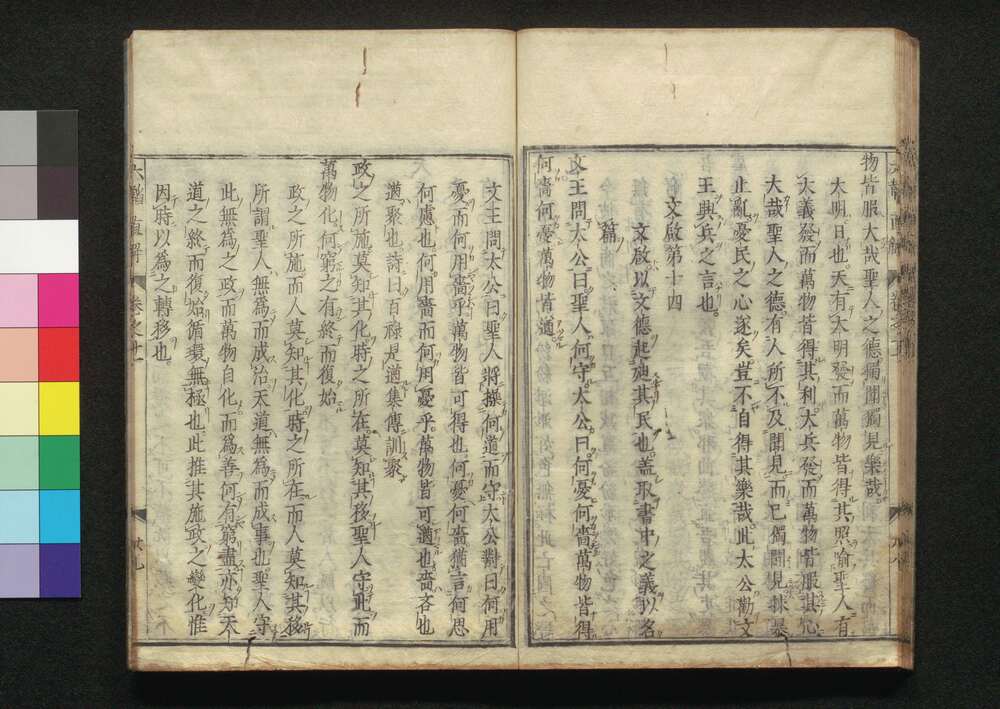 物皆服大哉聖人之德獨聞獨見樂哉
太明日也天有太明發而萬物皆得其照喻聖人有
大義發而萬物皆得其利大兵發而萬物皆服其心
大哉聖人之德有人所不及聞見而已獨聞見禁暴
止亂憂民之心遂矣豈不自得其樂哉此太公勸文
王興兵之言也
文啟第十四
文啟以文德啟迪其民也蓋取書中之義以名
篇
文王問太公曰聖人何守太公曰何憂何嗇萬物皆得
何嗇何憂萬物皆遒
文王問太公曰聖人將操何道而守太公對曰何用
憂而何用嗇乎萬物皆可得也何憂何嗇猶言何思
何慮也何用嗇而何用憂乎萬物皆可遒也嗇吝也
遒聚也詩曰百祿是遒集傳訓聚
政之所施莫知其化時之所在莫知其移聖人守此而
萬物化何窮之有終而復始
政之所施而人莫知其化時之所在而人莫知其移
所謂聖人無為而成治天道無為而成事也聖人守
此無為之政而萬物自化而為善何有窮盡亦如天
道之終而復始循環無極也此推其施政之變化惟
因時以為之轉移也
六韜直解
卷之上
廿九